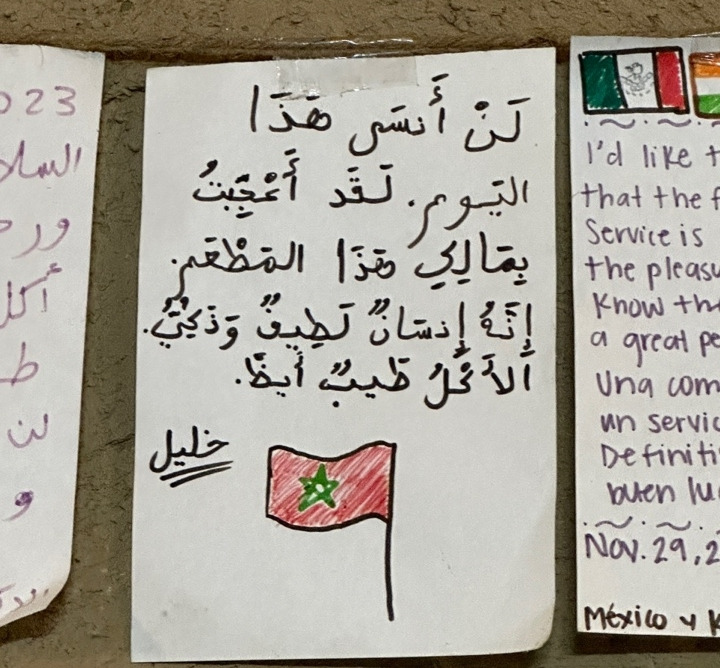 023
السلا
ور
أكل
ط
لن
و
لَنْ أَنسَى هَذَا
اليَوم. لَقَد أُعْجِبْتُ
بِمَالِكِ هَذَا المَطْعَم.
إِنَّهُ إِنسَانٌ لَطِيفٌ وَذَكِيٌّ.
اَلأَكْلُ طَيبٌ أَيضًا.
خليل
I'd like t
that the f
Service is
the pleasu
Know th
a great pe
Una com
un servic
Definiti
buen lu
Nov. 29, 2
México y